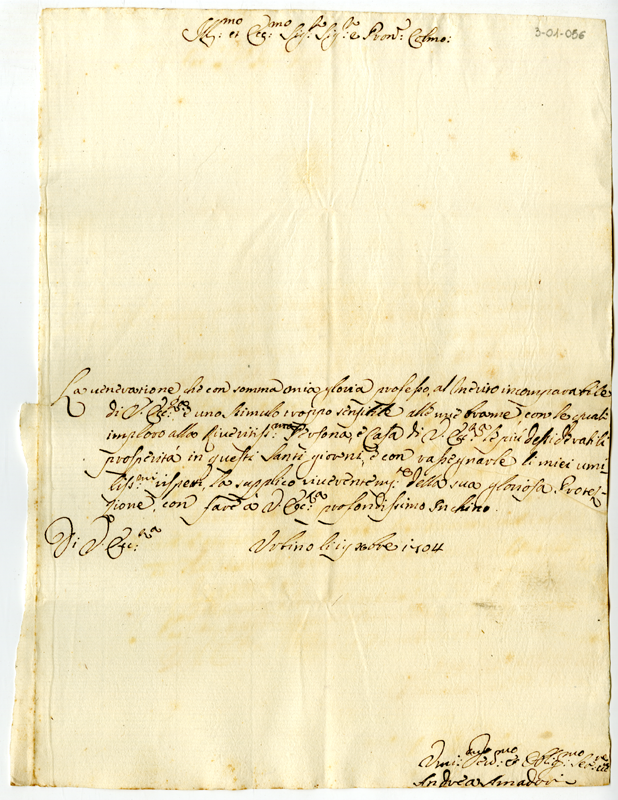 3-01-056
Ill:mo et Ecc:mo Sig:r Sig:r e Pron: Colmo:
La venerazione che con somma mia gloria professo, al Merito incomparabile
di V. Ecc:za è uno stimolo troppo sensibile alle mie brame con le quali
imploro alla Riveritiss:ma Persona, e Casa di V. Ecc:za le più desiderabili
prosperità in questi Santi giorni, e con rassegnarle li miei umi-
liss:mi rispetti, la supplico riverentem:te della sua gloriosa Protez-
zione, con fare à V. Ecc:za profondissimo Inchino.
Di V. Ecc:za
Urbino li xmbre 1704
Umi: Dev:mo et Obblig:mo Ser:re
Andrea Amadori